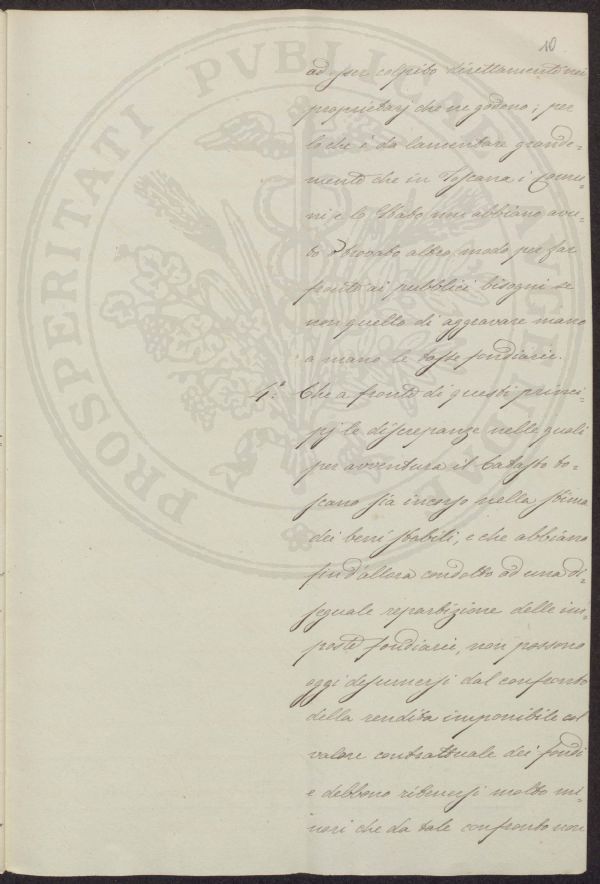 10
ad esser colpito direttamente nei
proprietarj che ne godono; per
lo che è da lamentare grande-
mente che in Toscana i Comu-
ni e lo Stato non abbiano avu-
to o trovato altro modo per far
fronte ai pubblici bisogni se
non quello di aggravare mano
a mano le tasse fondiarie.
4.° Che a fronte di questi princi-
pj le discrepanze nelle quali
per avventura il Catasto to-
scano sia incorso nella stima
dei beni stabili, e che abbiano
fin d'allora condotto ad una di-
seguale repartizione delle im-
poste fondiarie, non possono
oggi desumersi dal confronto
della rendita imponibile col
valore contrattuale dei fondi
e debbono ritenersi molto mi-
nori che da tale confronto non
PROSPERITATI PVBLICAE AVGENDAE